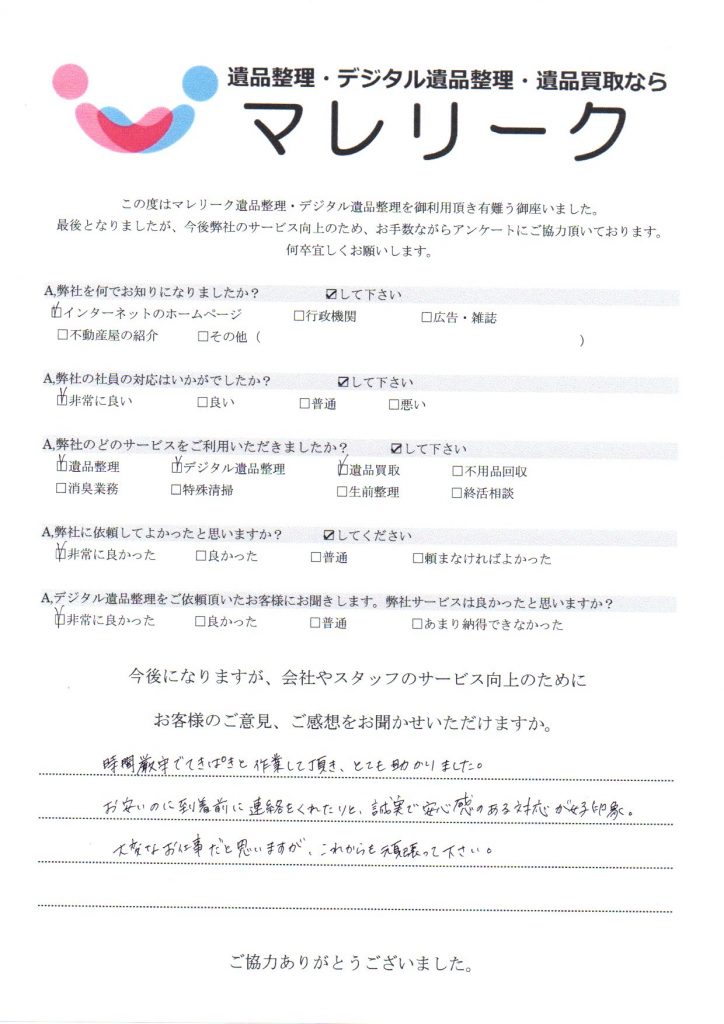 遺品整理・デジタル遺品整理・遺品買取なら
マレリーク
この度はマレリーク遺品整理・デジタル遺品整理を御利用頂き有難う御座いました。
最後となりましたが、今後弊社のサービス向上のため、お手数ながらアンケートにご協力頂いております。
何卒宜しくお願いします。
A,弊社を何でお知りになりましたか？ ☑して下さい
☑インターネットのホームページ □行政機関 □広告・雑誌
□不動産屋の紹介 □その他（ ）
A,弊社の社員の対応はいかがでしたか？ ☑して下さい
☑非常に良い □良い □普通 □悪い
A,弊社のどのサービスをご利用いただきましたか？ ☑して下さい
☑遺品整理 ☑デジタル遺品整理 ☑遺品買取 □不用品回収
□消臭業務 □特殊清掃 □生前整理 □終活相談
A,弊社に依頼してよかったと思いますか？ ☑してください
☑非常に良かった □良かった □普通 □頼まなければよかった
A,デジタル遺品整理をご依頼頂いたお客様にお聞きします。弊社サービスは良かったと思いますか？
☑非常に良かった □良かった □普通 □あまり納得できなかった
今後になりますが、会社やスタッフのサービス向上のために
お客様のご意見、ご感想をお聞かせいただけますか。
時間厳守でてきぱきと作業して頂き、とても助かりました。
お安いのに到着前に連絡をくれたりと、誠実で安心感のある対応が好印象。
大変なお仕事だと思いますが、これからも頑張って下さい。
ご協力ありがとうございました。